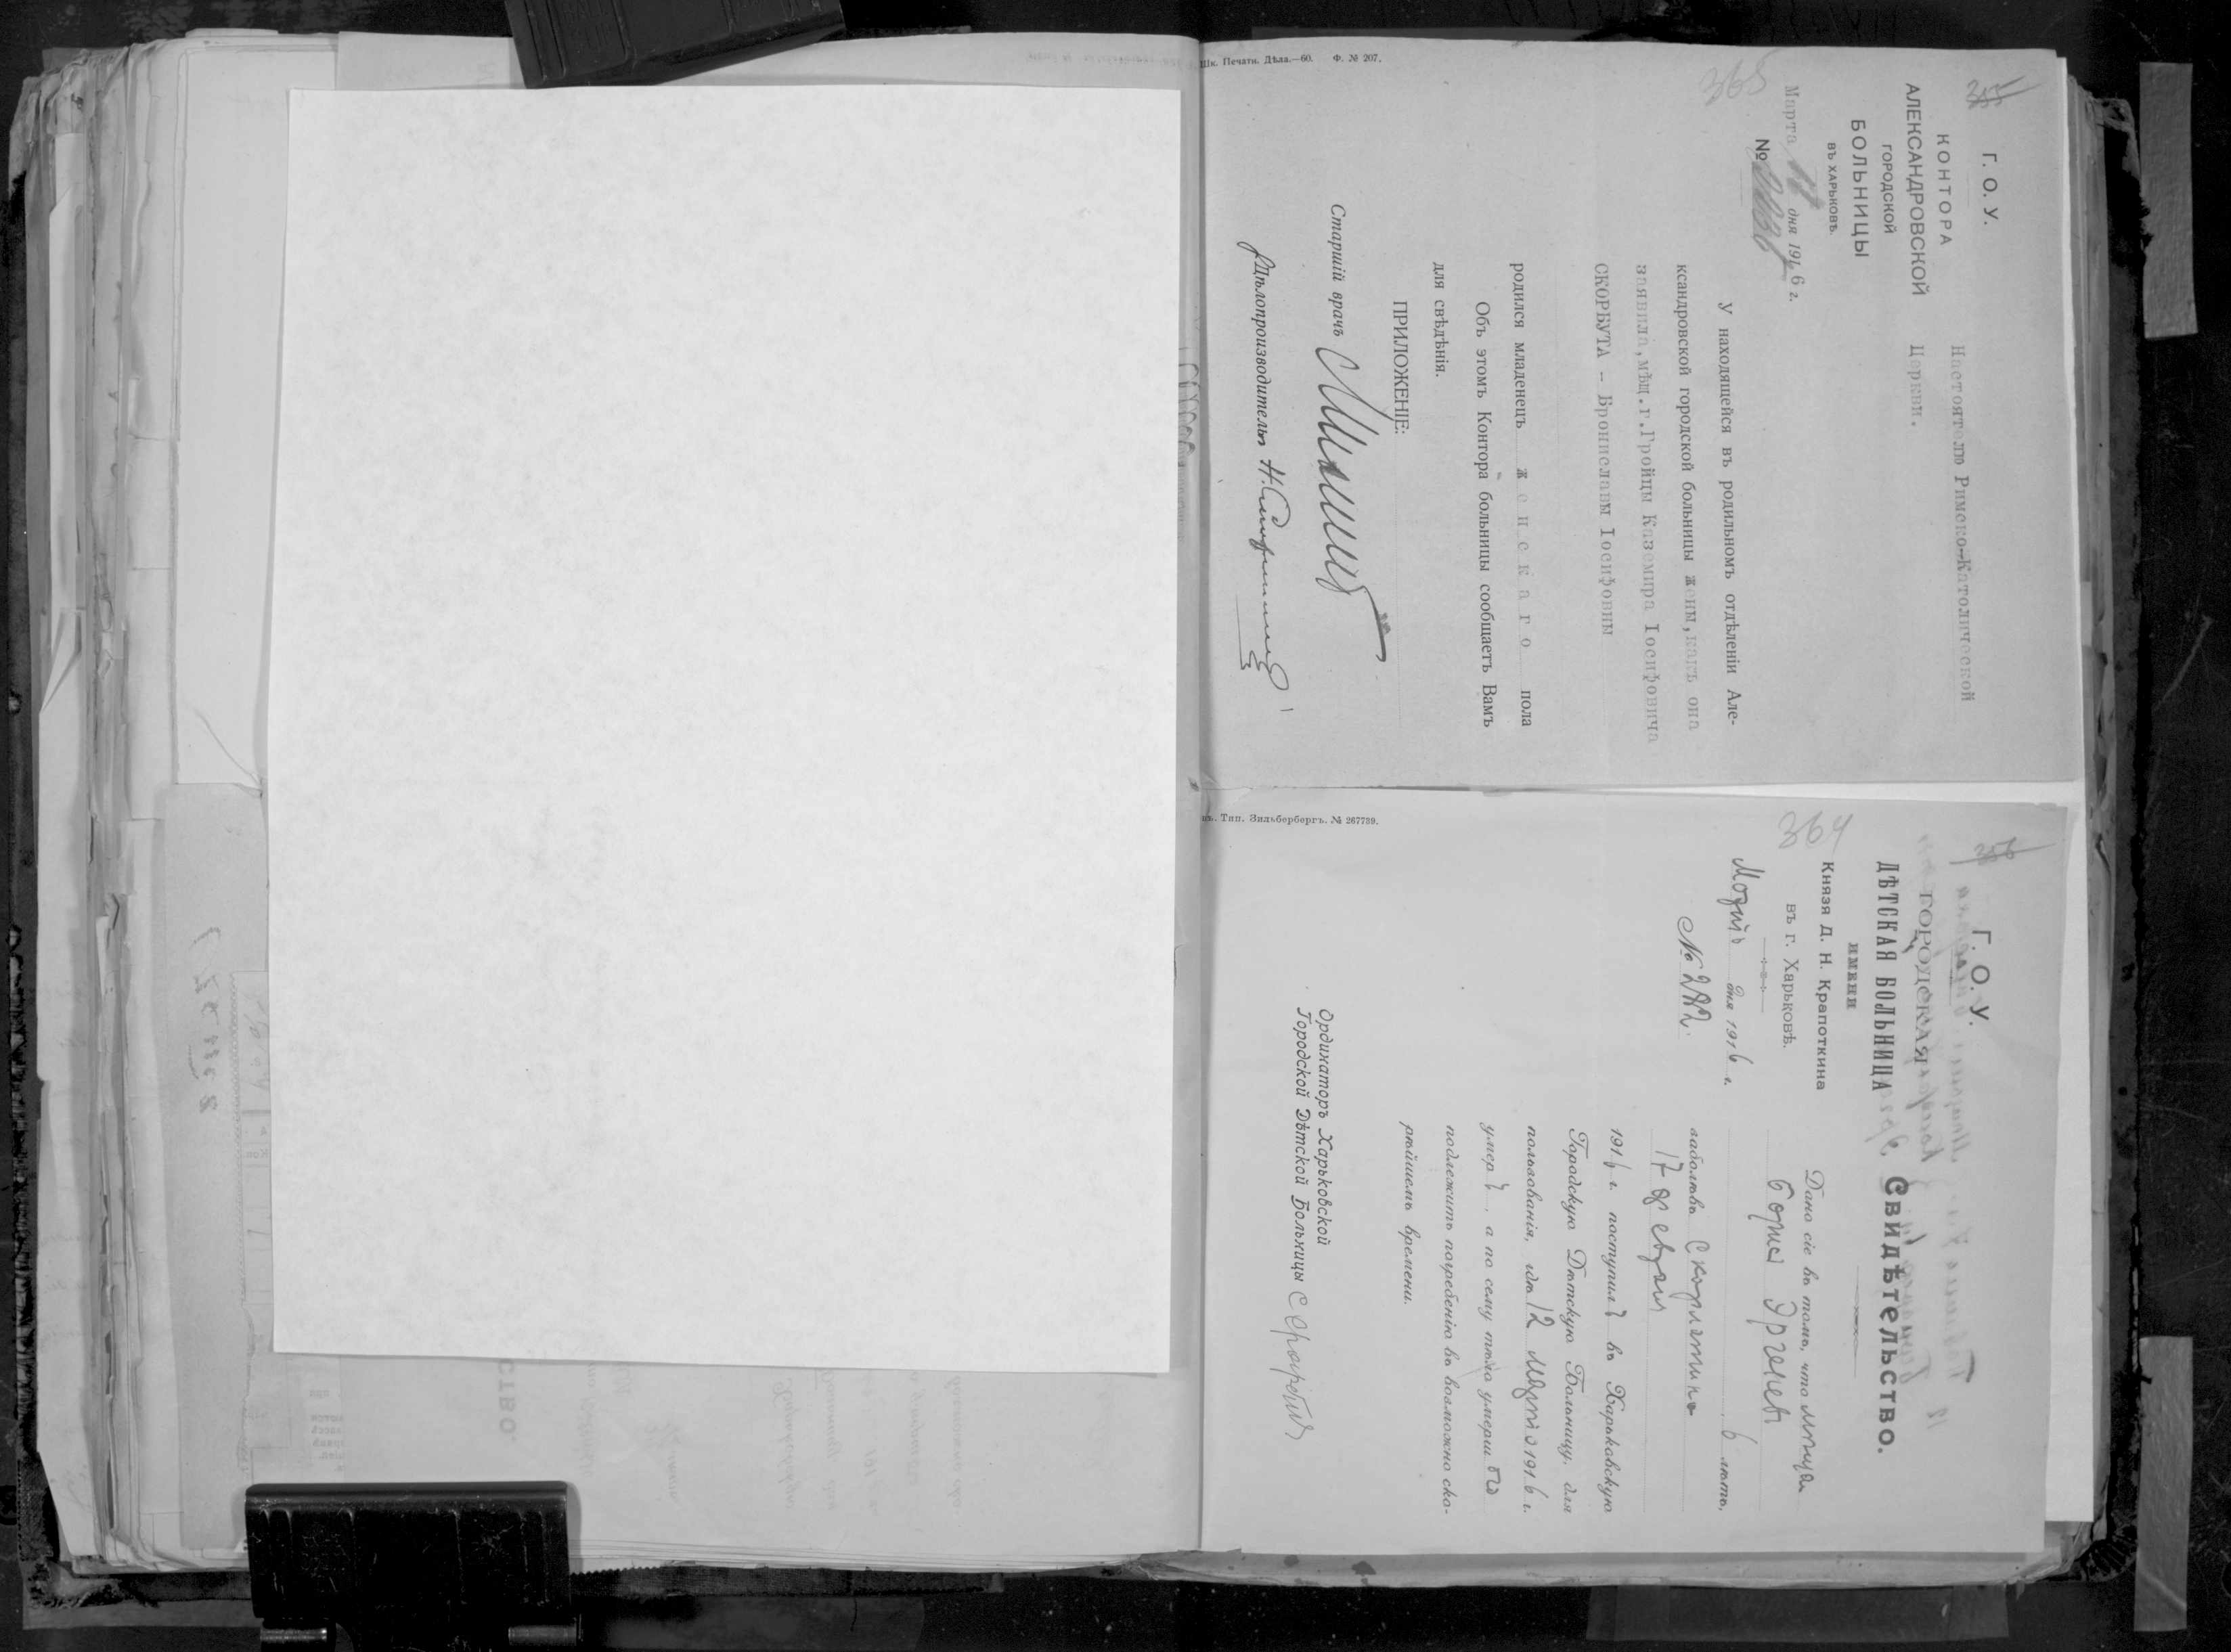 Шк. Печатн. Дѣла.—60. Ф. № 207.
365
Г. О. У.
КОНТОРА
АЛЕКСАНДРОВСКОЙ
ГОРОДСКОЙ
БОЛЬНИЦЫ
ВЪ ХАРЬКОВѢ.
Марта дня 1916 г.
№
Настоятелю Римско-Католической
Церкви.
У находящейся въ родильномъ отдѣленіи Але-
ксандровской городской больницы жены, какъ она
заявила, мѣщ. г. Гройцы Каземира Іосифовича
СКОРБУТА – Брониславы Іосифовны
родился младенецъ женскаго пола
Объ этомъ Контора больницы сообщаетъ Вамъ
для свѣдѣнія.
ПРИЛОЖЕНІЕ:
Старшій врачъ
Дѣлопроизводитель
Тип. Зильбербергъ. № 267739.
364
Г. О. У.
ГОРОДСКАЯ
ДѢТСКАЯ БОЛЬНИЦА
ИМЕНИ
Князя Д. Н. Крапоткина
въ г. Харьковѣ.
дня 1916 г.
№ 282.
Свидѣтельство.
Дано сіе въ томъ, что
Борисъ
6 лѣтъ,
заболѣвъ Скарлатиной
17 февраля
1916 г. поступилъ въ Харьковскую
Городскую Дѣтскую Больницу, для
пользованія, гдѣ 12 марта 1916 г.
умеръ, а по сему тѣло умершаго
подлежитъ погребенію въ возможно ско-
рѣйшемъ времени.
Ординаторъ Харьковской
Городской Дѣтской Больницы